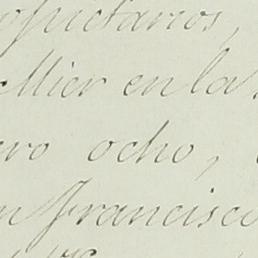 opietarios,
llier en la
ero ocho,
n Francisco